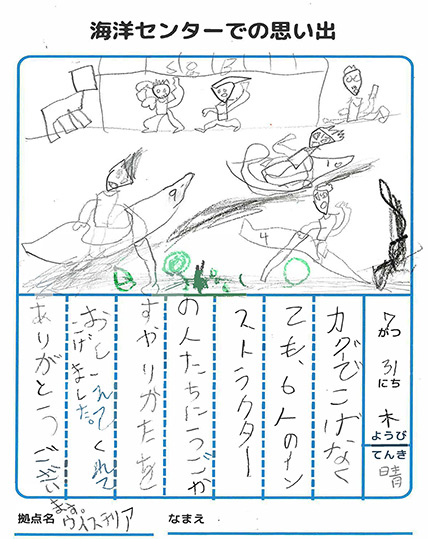 海洋センターでの思い出
9
10
4
7がつ31にち木ようび
てんき晴
カヌーでこげなく
ても、6人のイン
ストラクター
の人たちにうごか
すやりかたを
おしえてくれて
こげました。
ありがとうござい
ます。
拠点名 ウィステリア
なまえ